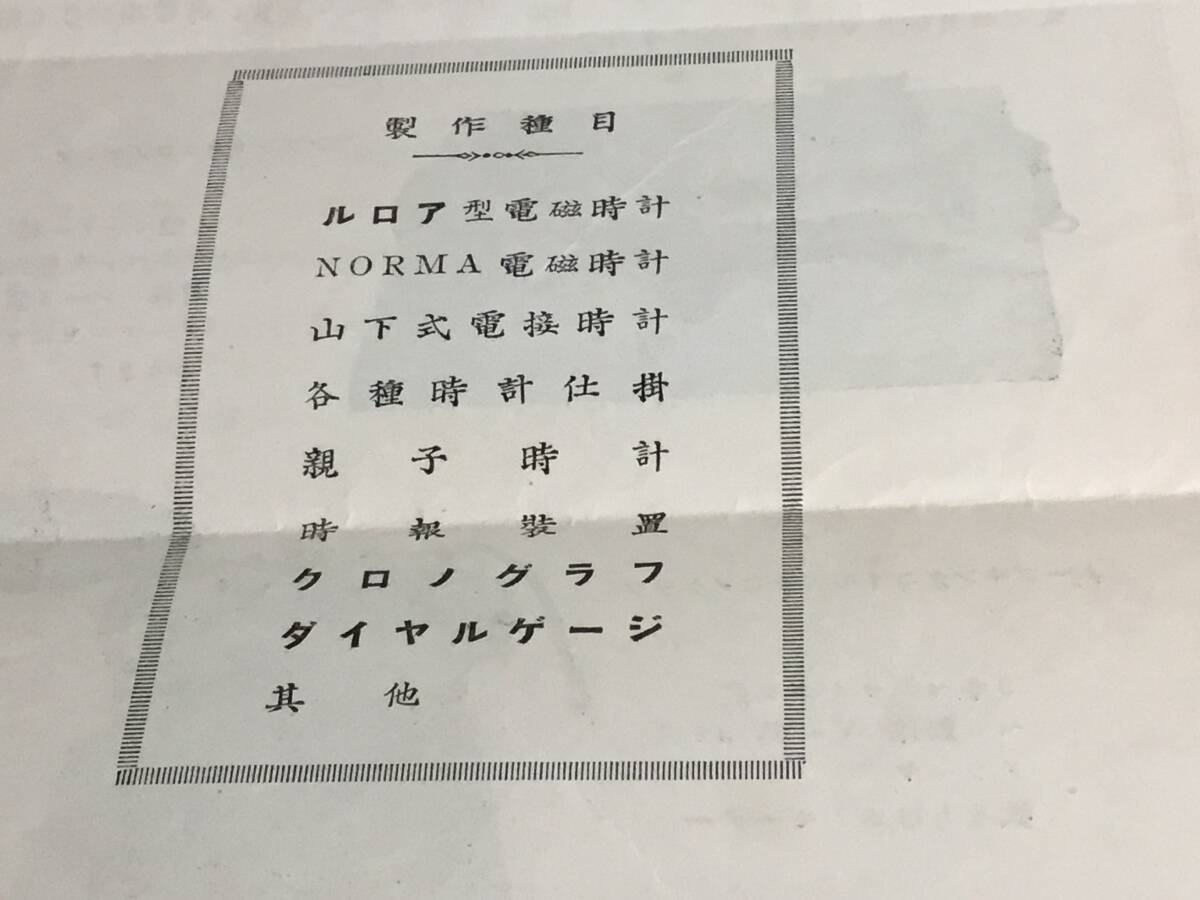 製作種目
ルロア型電磁時計
NORMA電磁時計
山下式電接時計
各種時計仕掛
親子時計
時報裝置
クロノグラフ
ダイヤルゲージ
其他